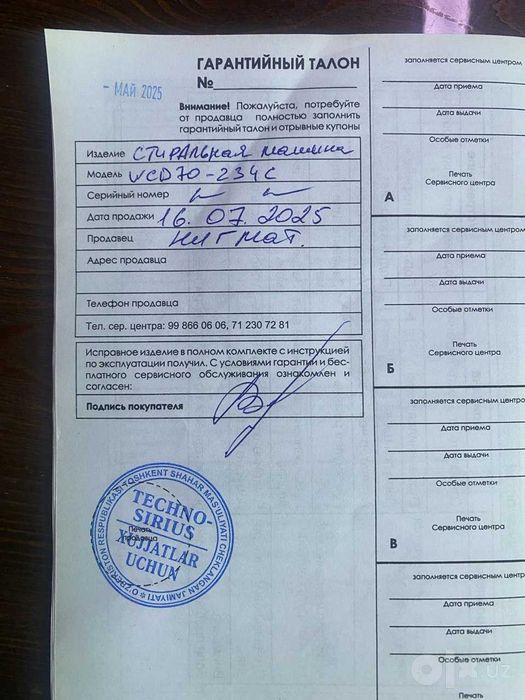 ГАРАНТИЙНЫЙ ТАЛОН
№
- МАЙ 2025
Внимание! Пожалуйста, потребуйте
от продавца полностью заполнить
гарантийный талон и отрывные купоны
Изделие Стиральная машина
Модель WCD70-234C
Серийный номер
Дата продажи 16.07.2025
Продавец Нигмат.
Адрес продавца
Телефон продавца
Тел. сер. центра: 99 866 06 06, 71 230 72 81
Исправное изделие в полном комплекте с инструкцией
по эксплуатации получил. С условиями гарантии и бес-
платного сервисного обслуживания ознакомлен и
согласен:
Подпись покупателя
O'ZBEKISTON RESPUBLIKASI TOSHKENT SHAHAR MAS'ULIYATI CHEKLANGAN JAMIYATI
TECHNO-
SIRIUS
Печать
продавца
XUJJATLAR
UCHUN
заполняется сервисным центром
Дата приема
Дата выдачи
Особые отметки
Печать
Сервисного центра
А
заполняется сервисным центром
Дата приема
Дата выдачи
Особые отметки
Печать
Сервисного центра
Б
заполняется сервисным центро
Дата приема
Дата выдачи
Особые отметки
Печать
Сервисного центра
В
заполняется сервисным центр
Дата приема
Дата выдачи
Особые отметки
Печать
olx.uz